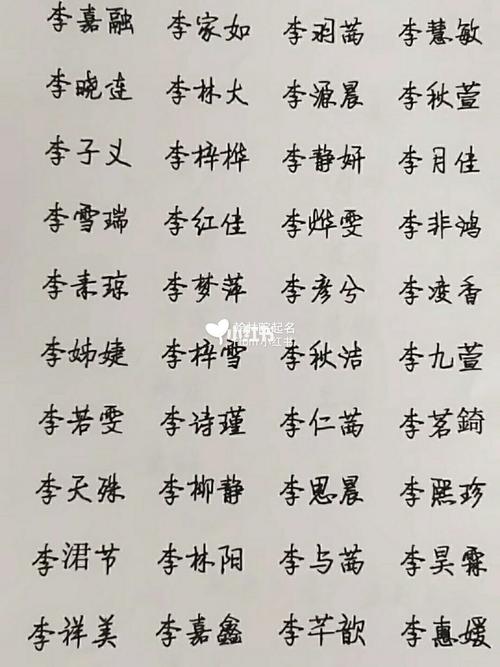 李嘉融 李家如 李羽茜 李慧敏
李晓连 李林大 李源晨 李秋萱
李子义 李梓桦 李静妍 李月佳
李雪瑞 李红佳 李烨雯 李非鸿
李素琼 李梦萍 李彦兮 李凌香
李姊婕 李梓雪 李秋洁 李九萱
小红书
李若雯 李诗瑾 李仁茜 李茗錡
李天殊 李柳静 李思晨 李熙珍
李涒节 李林阳 李与茜 李昊霖
李祥美 李嘉鑫 李芊歆 李惠媛